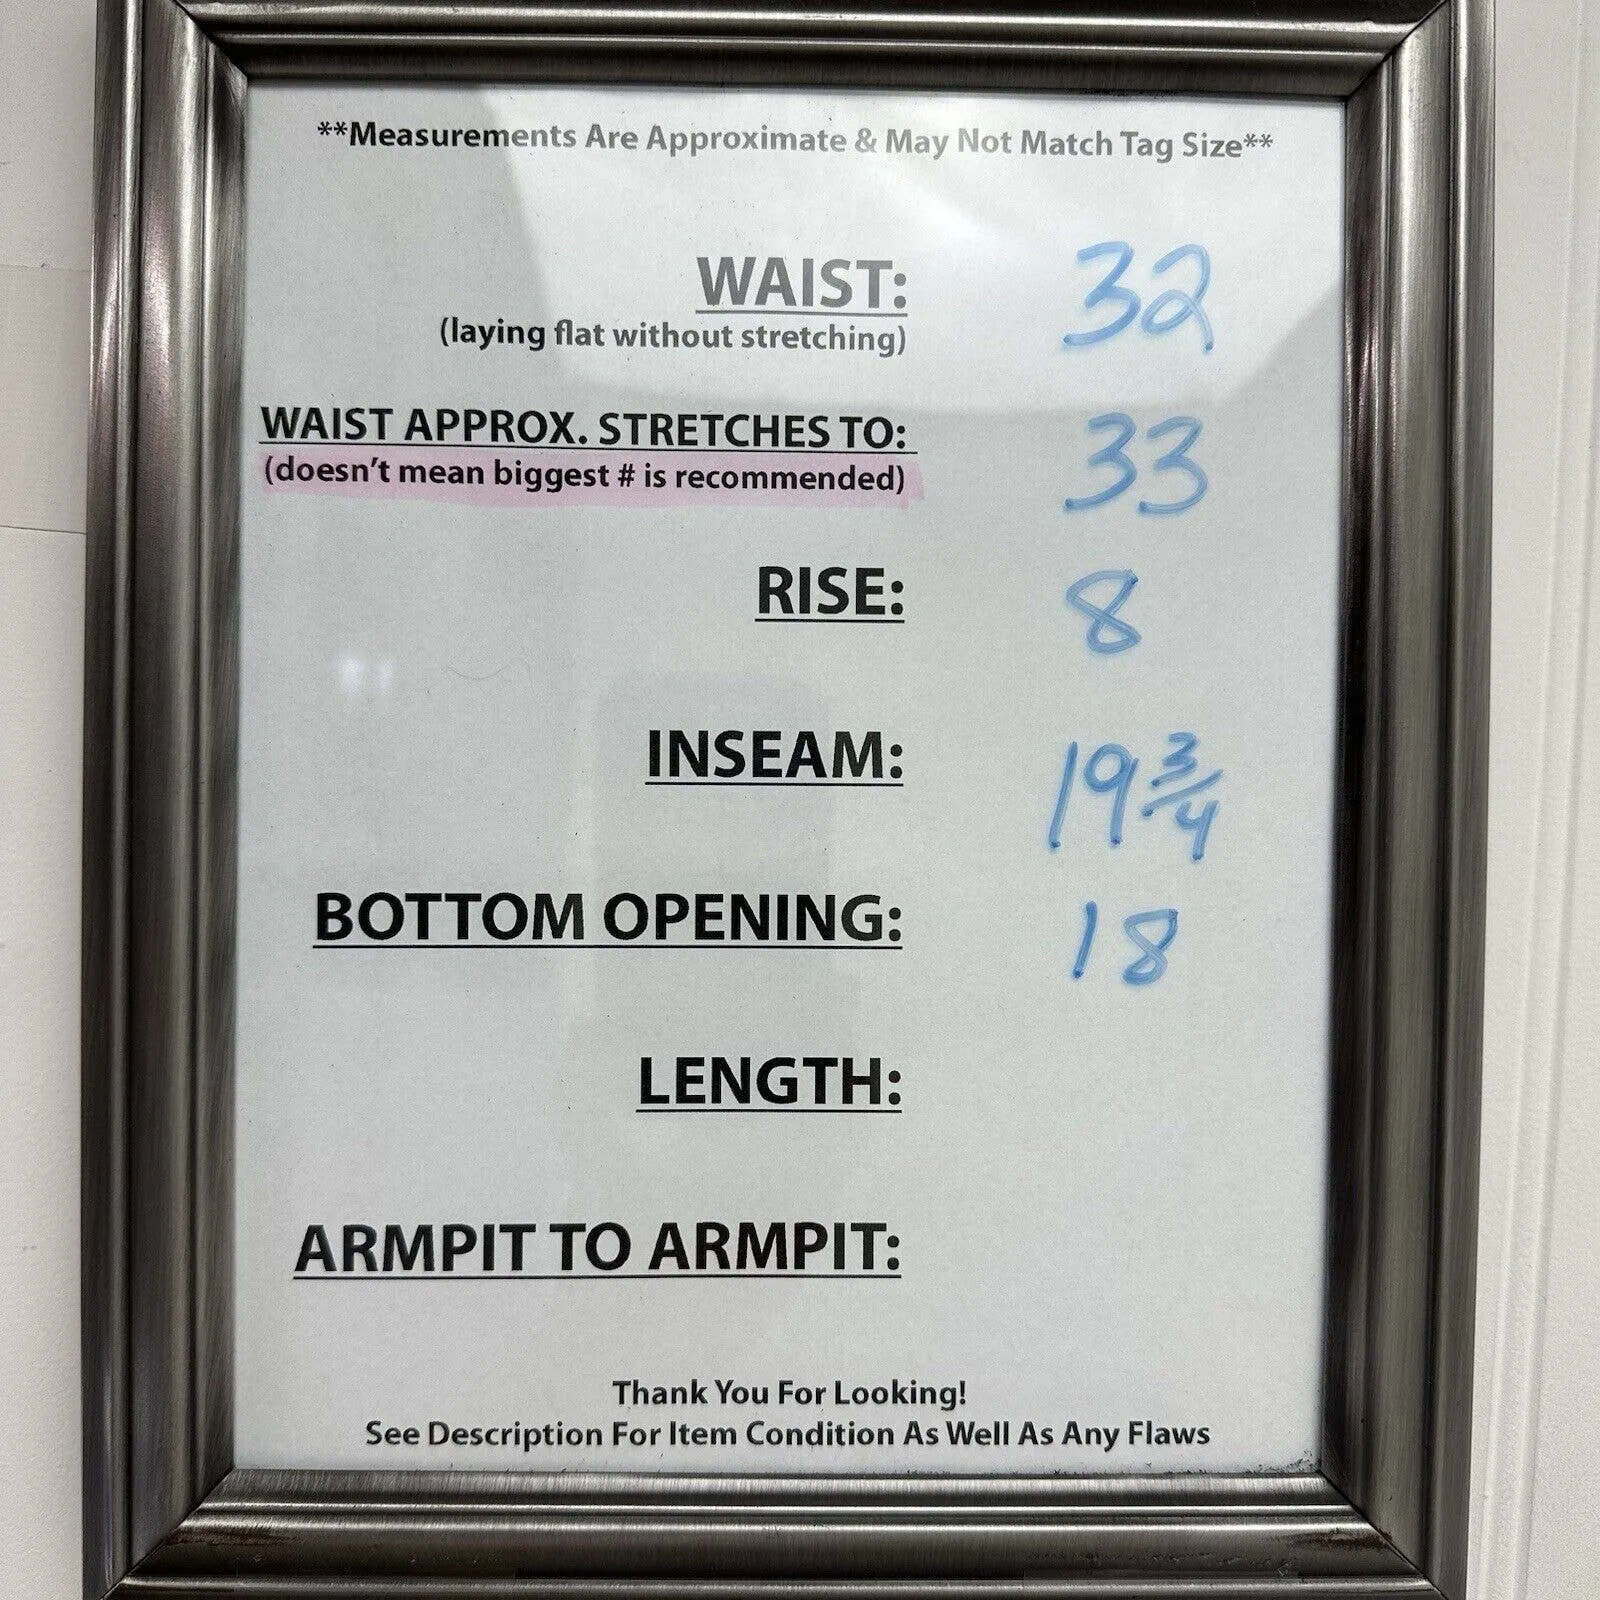 **Measurements Are Approximate & May Not Match Tag Size**
WAIST: 32
(laying flat without stretching)
WAIST APPROX. STRETCHES TO: 33
(doesn't mean biggest # is recommended)
RISE: 8
INSEAM: 19 3/4
BOTTOM OPENING: 18
LENGTH:
ARMPIT TO ARMPIT:
Thank You For Looking!
See Description For Item Condition As Well As Any Flaws